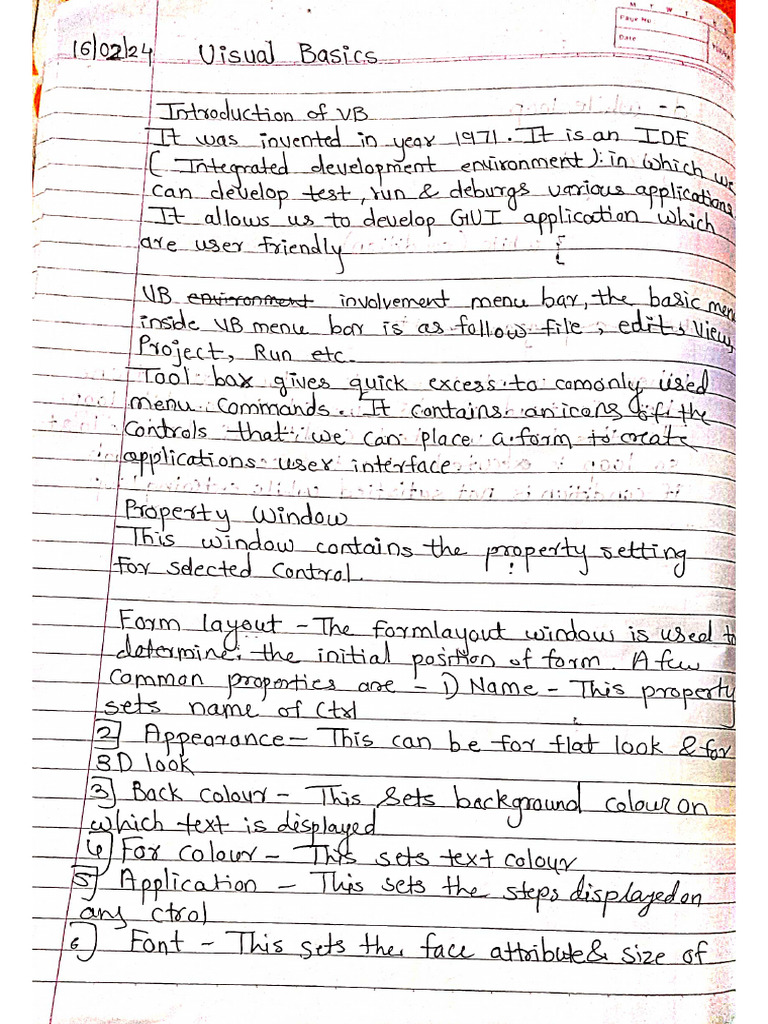 M T W T F S S
Page No
Date
16/02/24 Visual Basics
Introduction of VB
It was invented in year 1971. It is an IDE
( Integrated development environment ): in which we
can develop test, run & deburgs various applications
It allows us to develop GUI application which
are user friendly
VB environment involvement menu bar, the basic menu
inside VB menu bar is as follow file, edit, View,
Project, Run etc.
Tool bax gives quick excess to comonly used
menu commands. It contains an icons of the
controls that we can place a form to create
applications user interface
Property Window
This window contains the property setting
for selected control.
Form layout - The formlayout window is used to
determine the initial position of form. A few
common properties are - 1) Name - This property
sets name of Ctrl
2) Appearance - This can be for flat look & for
3D look
3) Back colour - This sets background colour on
which text is displayed
4) For colour - This sets text colour
5) Application - This sets the steps displayed on
any ctrol
6) Font - This sets the face attribute & size of